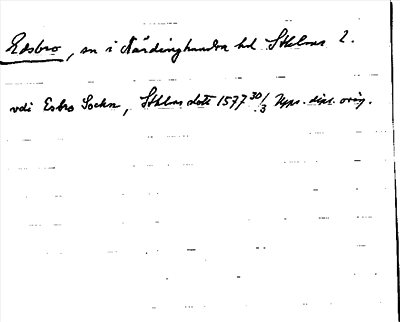 Edsbro, sn i Närdinghundra hd Sthlms l.
vdi Esbro Sockn, Sthlm dat 1577 30/3 Upps. dipl. orig.